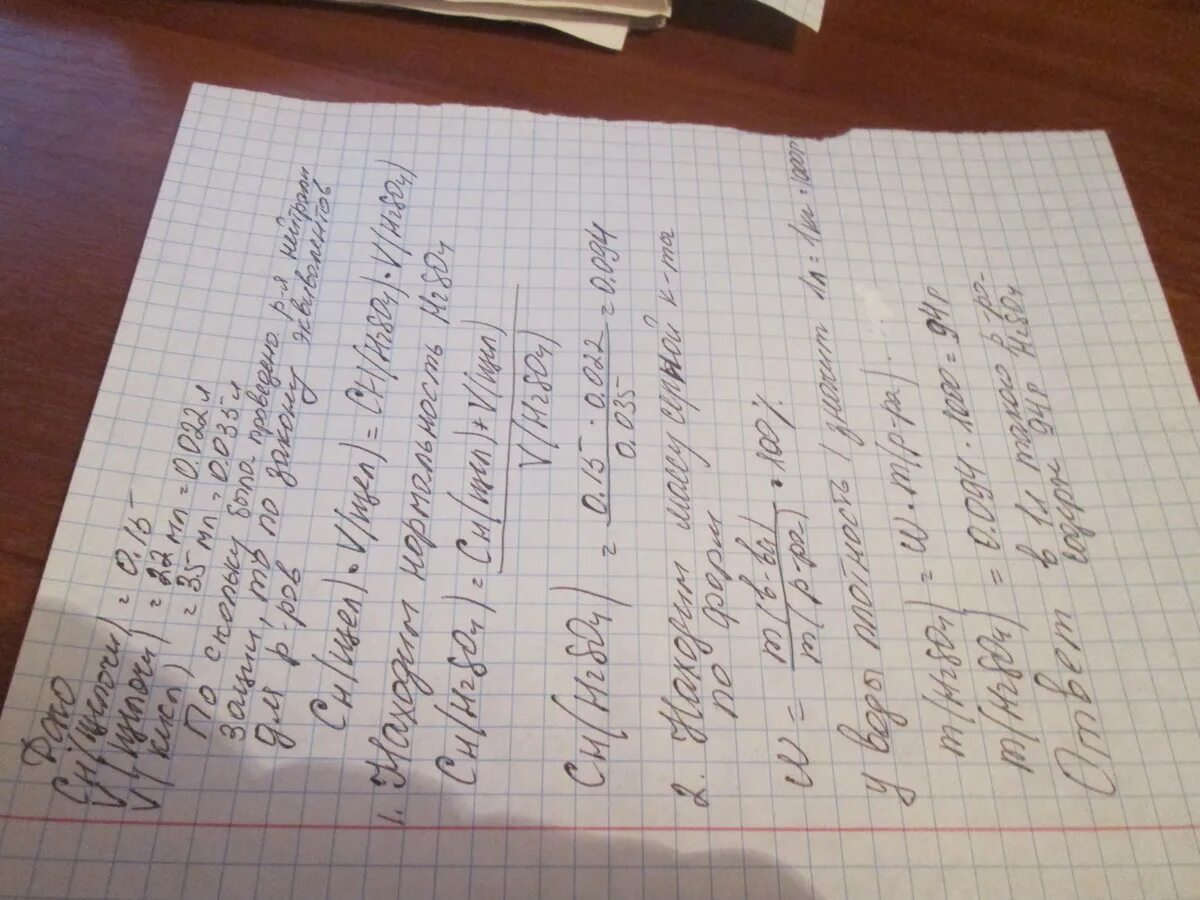 Дано
CН(щелочи) = 0,15
V(щелочи) = 22 мл = 0.022 л
V(кисл) = 35 мл = 0.035 л
По скольку была проведена р-я нейтрали
зации, то по закону эквивалентов
для р-ров
CН(щел)·V(щел) = CН(H2SO4)·V(H2SO4)
1. Находим нормальность H2SO4
CН(H2SO4) = CН(щел)*V(щел)
V(H2SO4)
CН(H2SO4) = 0.15 · 0.022 = 0.094
0.035
2. Находим массу серной к-та
по форм
W = m(в-ва) · 100%
m(р-ра)
У воды плотность 1 значит 1л = 1кг = 1000г
m(H2SO4) = W · m(р-ра)
m(H2SO4) = 0.094 · 1000 = 94 г
Ответ в 1л такого р-ра
94 г H2SO4